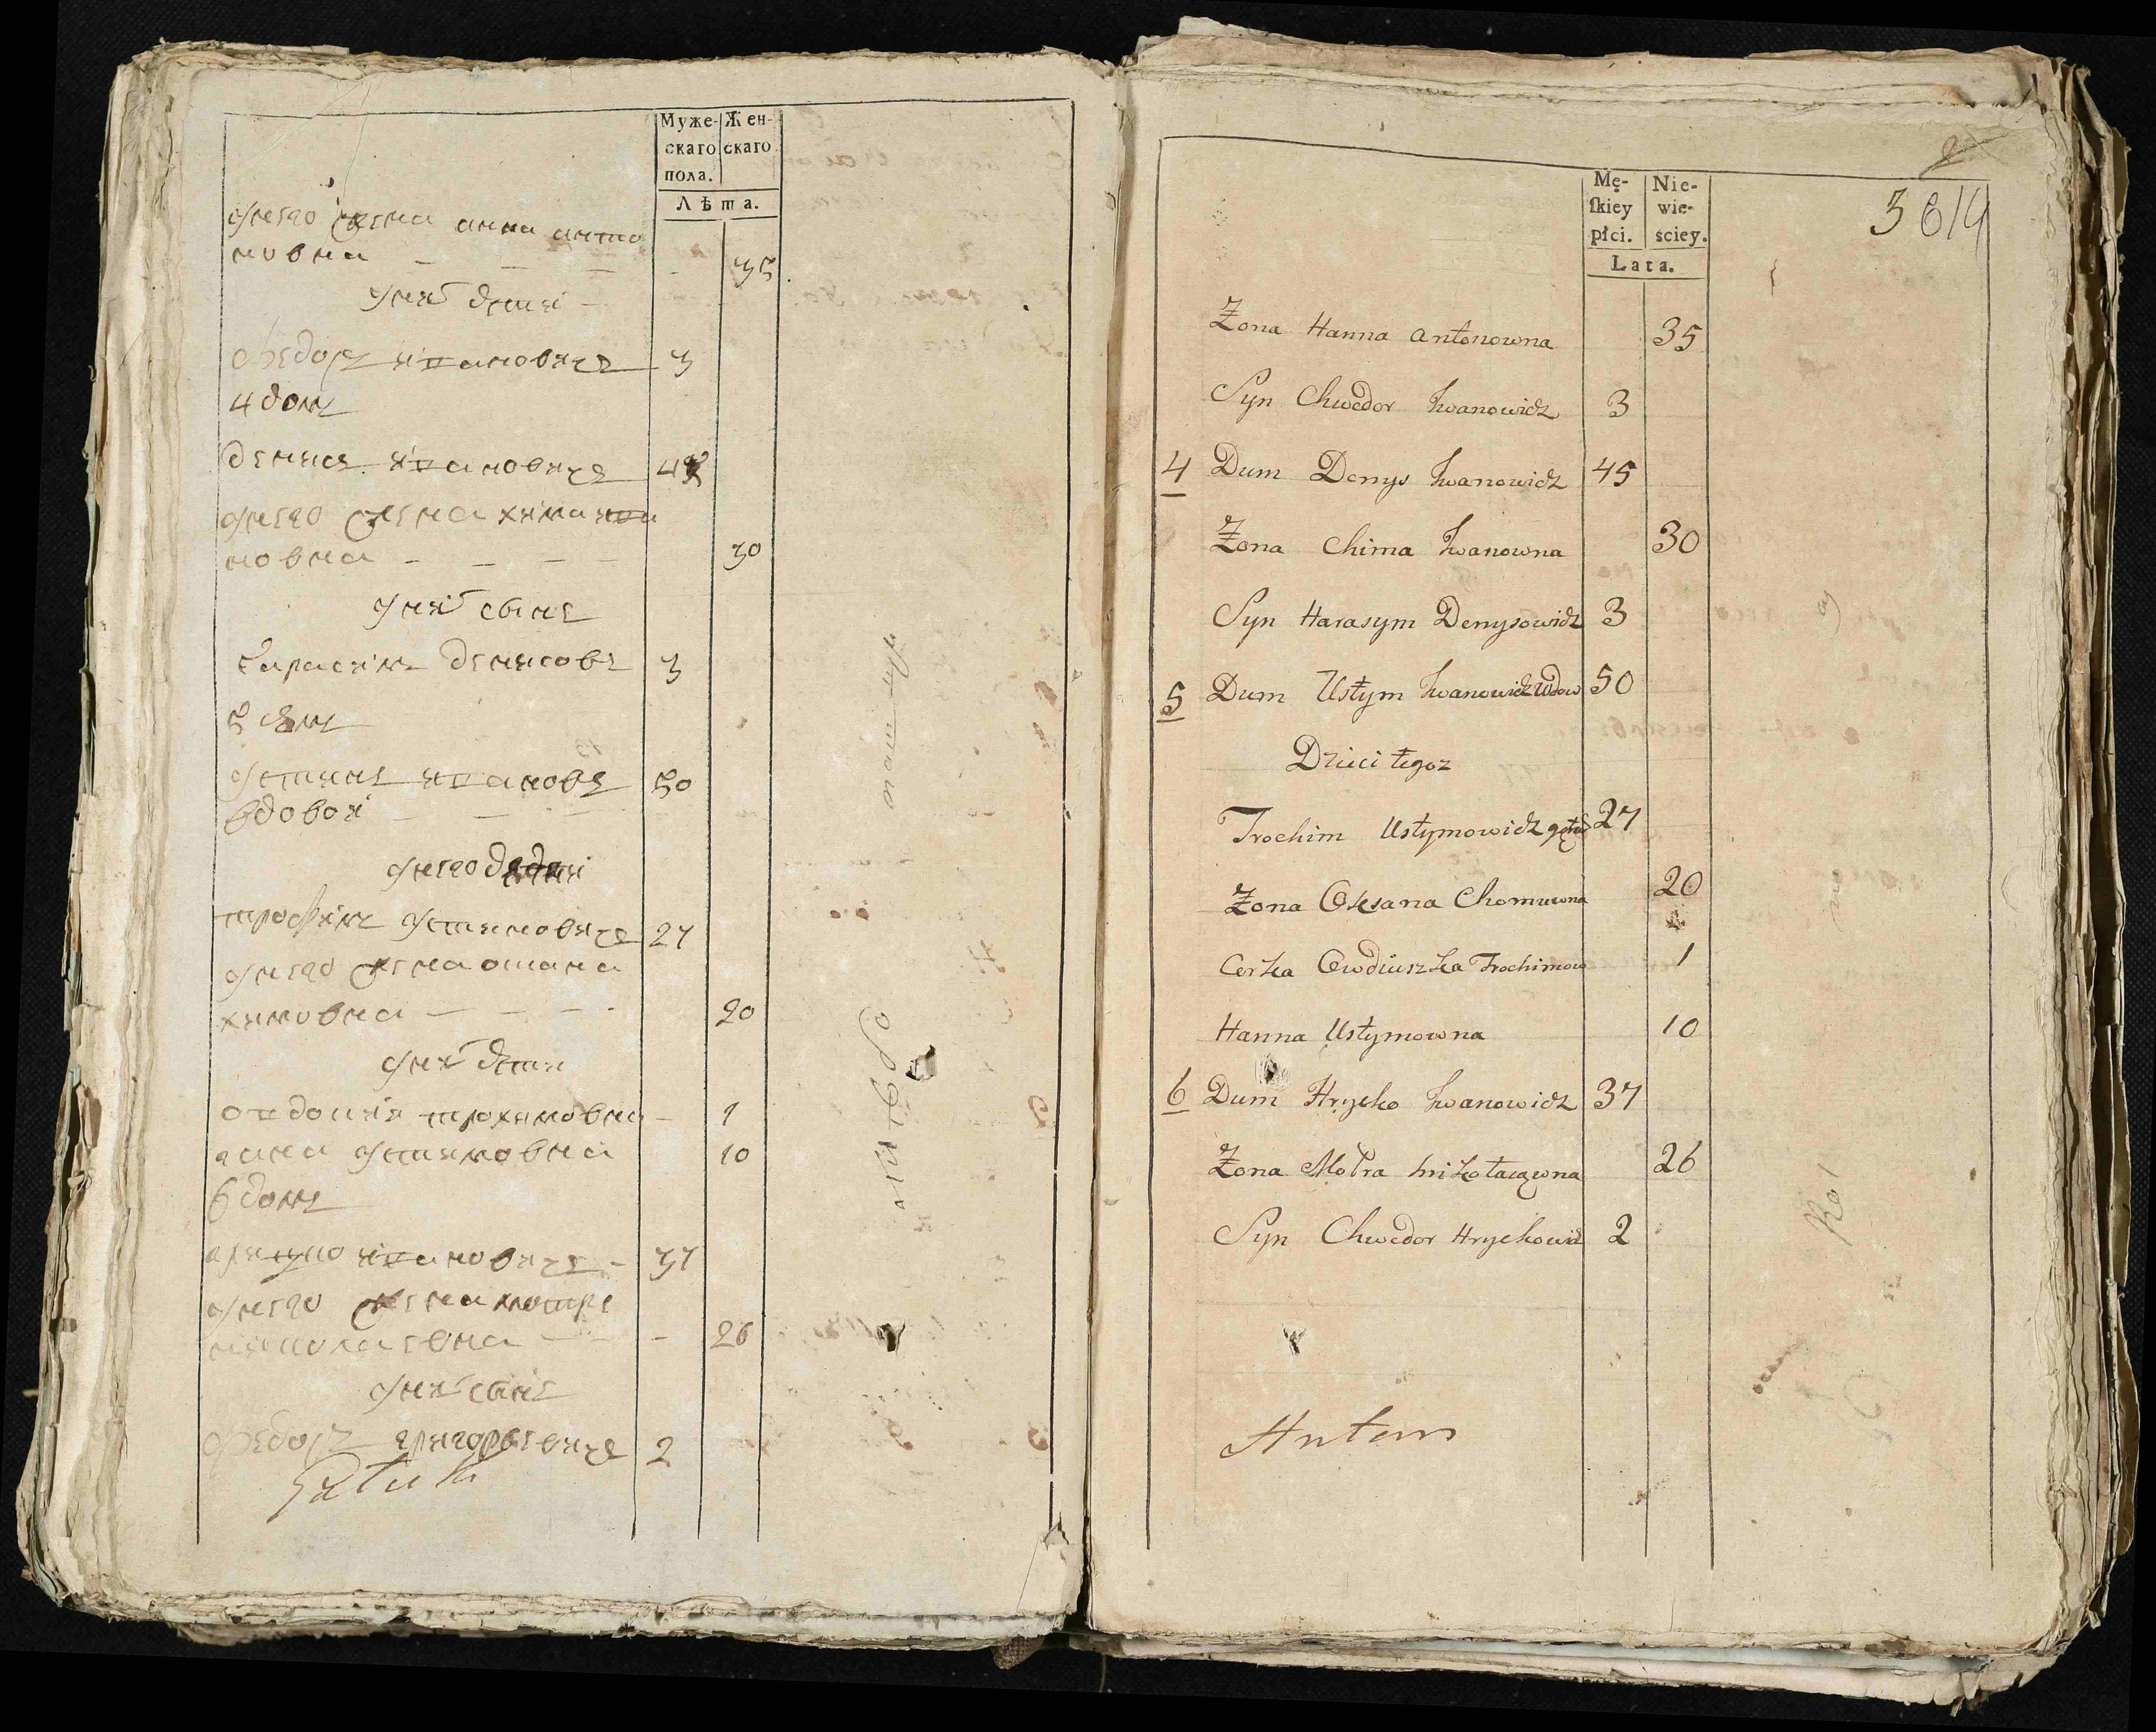 Муже-
скаго
пола.
Жен-
скаго
Лѣта.
у него жена анна анто
новна - - - - 35
у нихъ дети -
федоръ ивановичъ 3
4 домъ
денисъ ивановичъ
у него жена хима ива
новна - - - - 30
у нихъ сынъ
гарасимъ денисовъ 3
5 домъ
устинъ ивановъ 50
вдовой - - -
у него
трофимъ устимовичъ 27
у него жена
химовна - - - - 20
у нихъ дети
овдошия трохимовна - 1
гана устимовна 10
6 домъ
грицко ивановичъ - 37
у него жена мотре
николаевна - - - 26
у нихъ сынъ
федоръ григорьевичъ 2
Mę-
ſkiey
płci.
Nie-
wie-
ściey.
Lata.
3 614
Zona Hanna Antonowna 35
Syn Chwedor Iwanowicz 3
4 Dum Denys Iwanowicz 45
Zona Chima Iwanowna 30
Syn Harasym Denysowicz 3
5 Dum Ustym Iwanowicz Wdow 50
Dzieci tegoz
Trochim Ustymowicz 27
Zona Oxsana Chomuwna 20
Corka Owdiuszka Trochimow 1
Hanna Ustymowna 10
6 Dum Hrycko Iwanowicz 37
Zona Motra Mikołaiowna 26
Syn Chwedor Hryckowicz 2